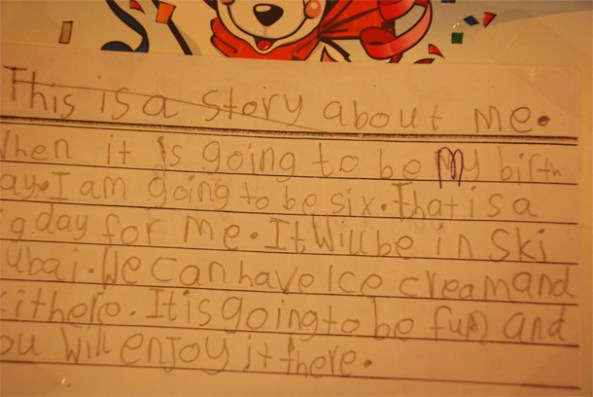 This is a story about me.
hen it is going to be my birth
ay. I am going to be six. that is a
g day for me. It Will be in Ski
ubai. We can have Ice cream and
it there. It is going to be fun and
ou will enjoy it there.